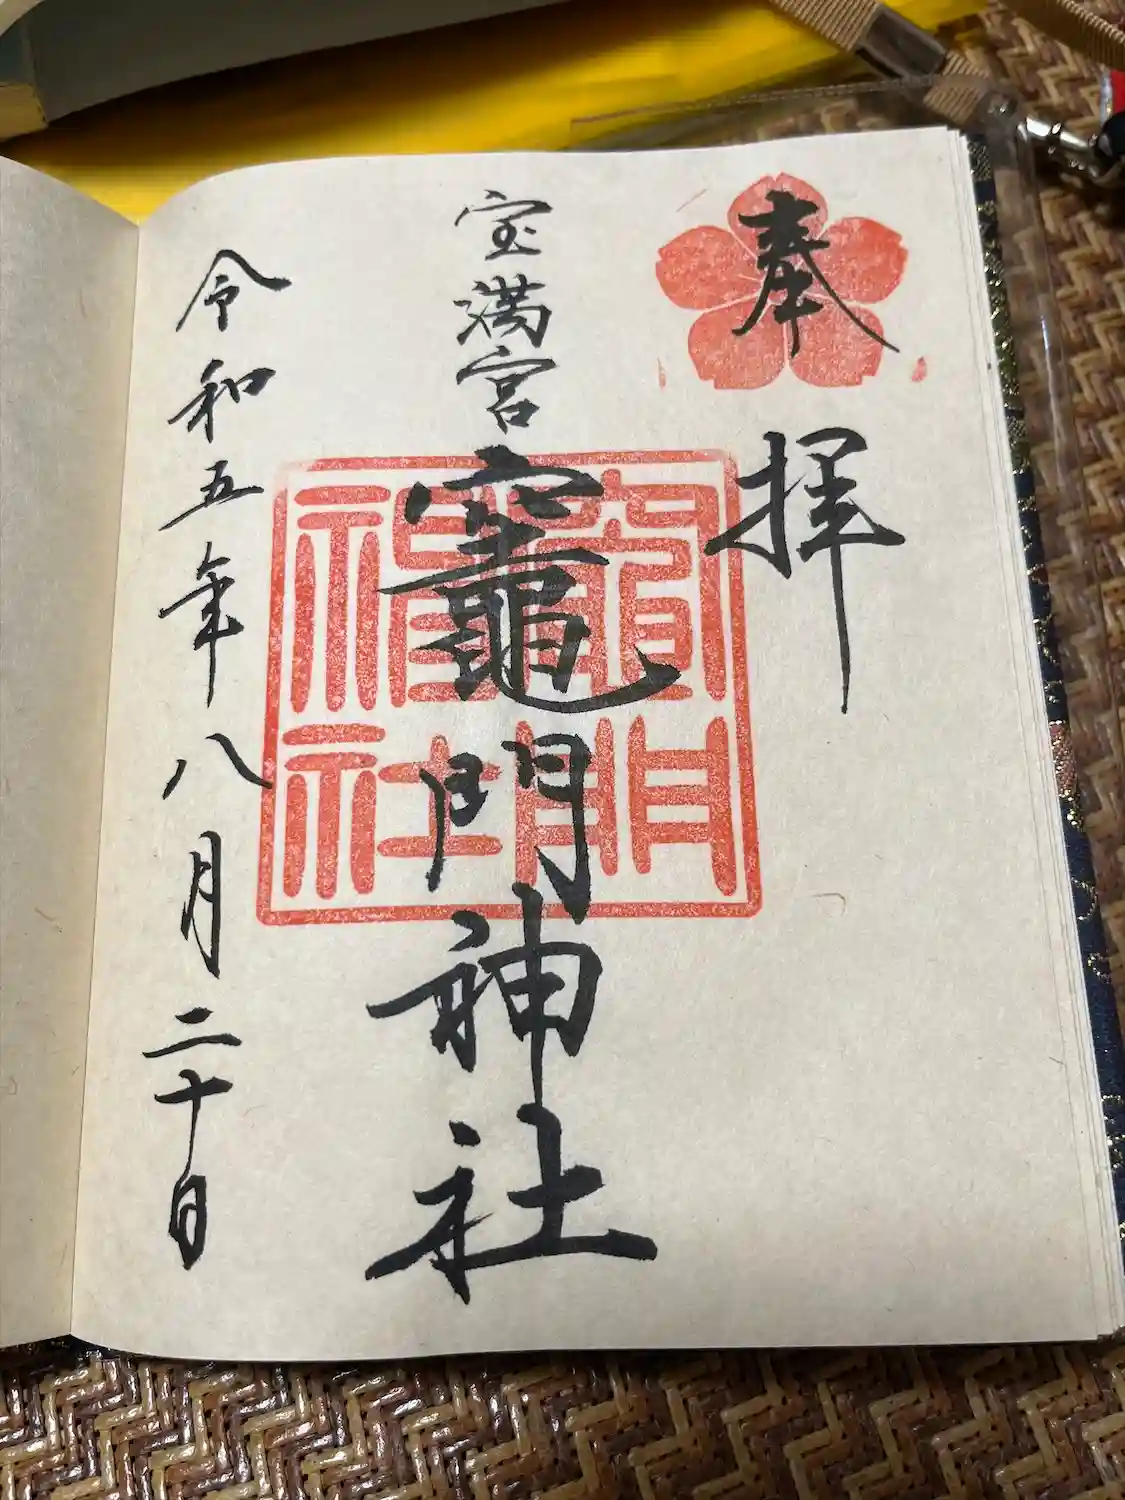 奉拝
宝満宮
竈門神社
竈門
神社
令和五年八月二十日